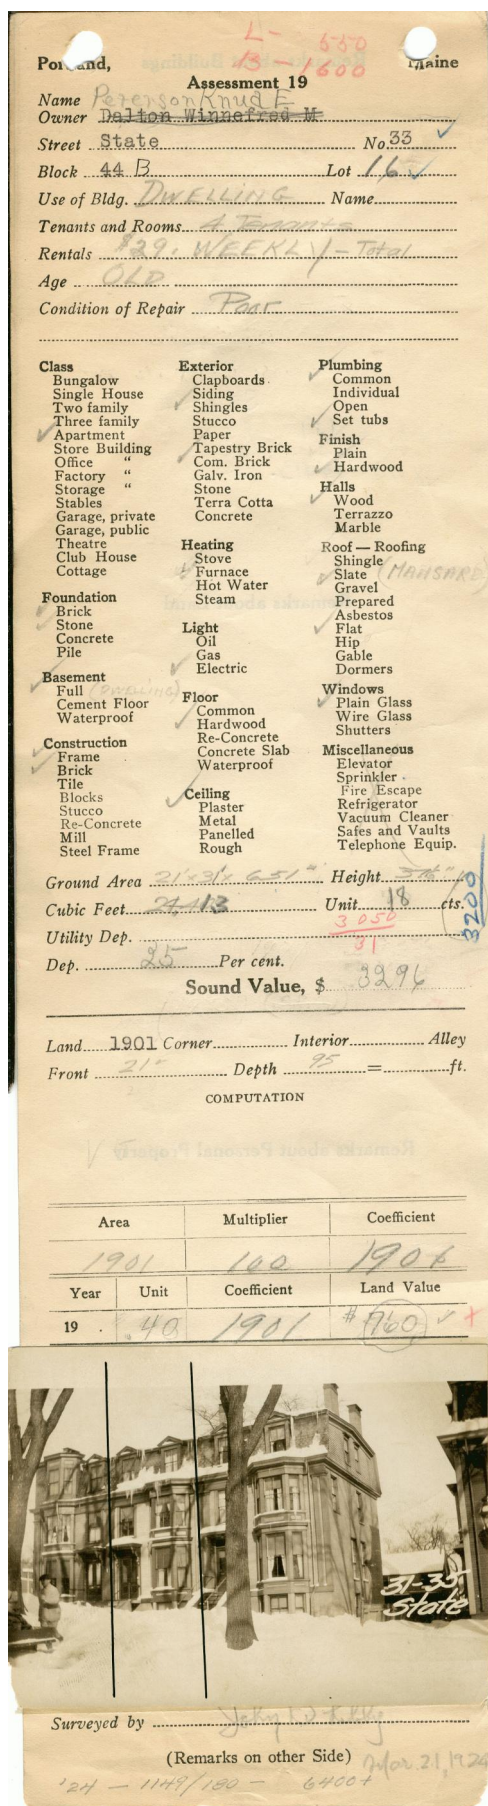 L- 550
B- 1600
Portland, Maine
Assessment 19
Name Peterson Knud E
Owner Dalton Winnefred M
Street State No. 33
Block 44 B Lot 16
Use of Bldg. DWELLING Name
Tenants and Rooms 4 Tenants
Rentals $29. WEEKLY - Total
Age OLD
Condition of Repair Poor
Class
Bungalow
Single House
Two family
Three family
Apartment
Store Building
Office "
Factory "
Storage "
Stables
Garage, private
Garage, public
Theatre
Club House
Cottage
Foundation
Brick
Stone
Concrete
Pile
Basement
Full (DWELLING)
Cement Floor
Waterproof
Construction
Frame
Brick
Tile
Blocks
Stucco
Re-Concrete
Mill
Steel Frame
Exterior
Clapboards
Siding
Shingles
Stucco
Paper
Tapestry Brick
Com. Brick
Galv. Iron
Stone
Terra Cotta
Concrete
Heating
Stove
Furnace
Hot Water
Steam
Light
Oil
Gas
Electric
Floor
Common
Hardwood
Re-Concrete
Concrete Slab
Waterproof
Ceiling
Plaster
Metal
Panelled
Rough
Plumbing
Common
Individual
Open
Set tubs
Finish
Plain
Hardwood
Halls
Wood
Terrazzo
Marble
Roof — Roofing
Shingle
Slate (MANSARD)
Gravel
Prepared
Asbestos
Flat
Hip
Gable
Dormers
Windows
Plain Glass
Wire Glass
Shutters
Miscellaneous
Elevator
Sprinkler
Fire Escape
Refrigerator
Vacuum Cleaner
Safes and Vaults
Telephone Equip.
Ground Area 21' x 31' = 651 Height
Cubic Feet 24,413 Unit 18 cts.
3200
3050
31
Utility Dep.
Dep. 25 Per cent.
Sound Value, $ 3296
Land 1901 Corner Interior Alley
Front 21 Depth 95 = ft.
COMPUTATION
Remarks about Personal Property
Area Multiplier Coefficient
1901 100 1901
Year Unit Coefficient Land Value
19 . .40 1901 $ 760
31-35
State
Surveyed by
(Remarks on other Side) Mar. 21, 1924
'24 - 1149/180 - 6400+